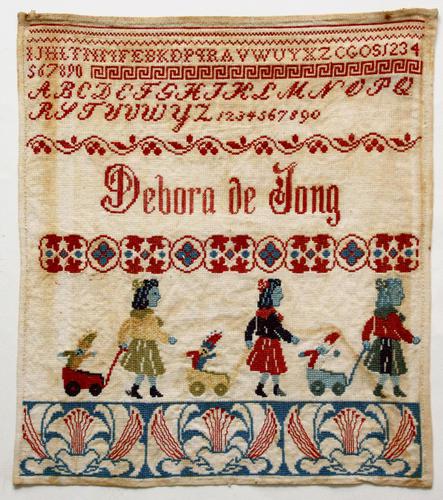 IJHLTNMFEBKDPPRAVWUYXZCGOS1234
567890
ABCDEFGHIJKLMNOPQ
RSTUVWYZ 1234567890
Debora de Jong